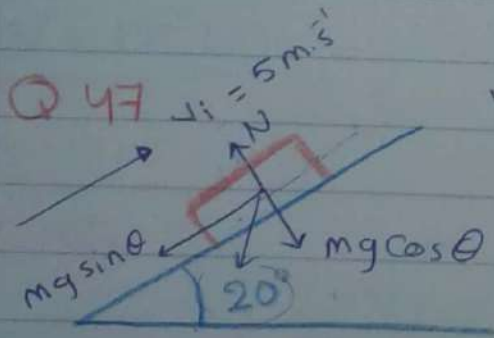 Q 47 vi = 5 m.s⁻¹
N
mg sinθ
mg cosθ
20°